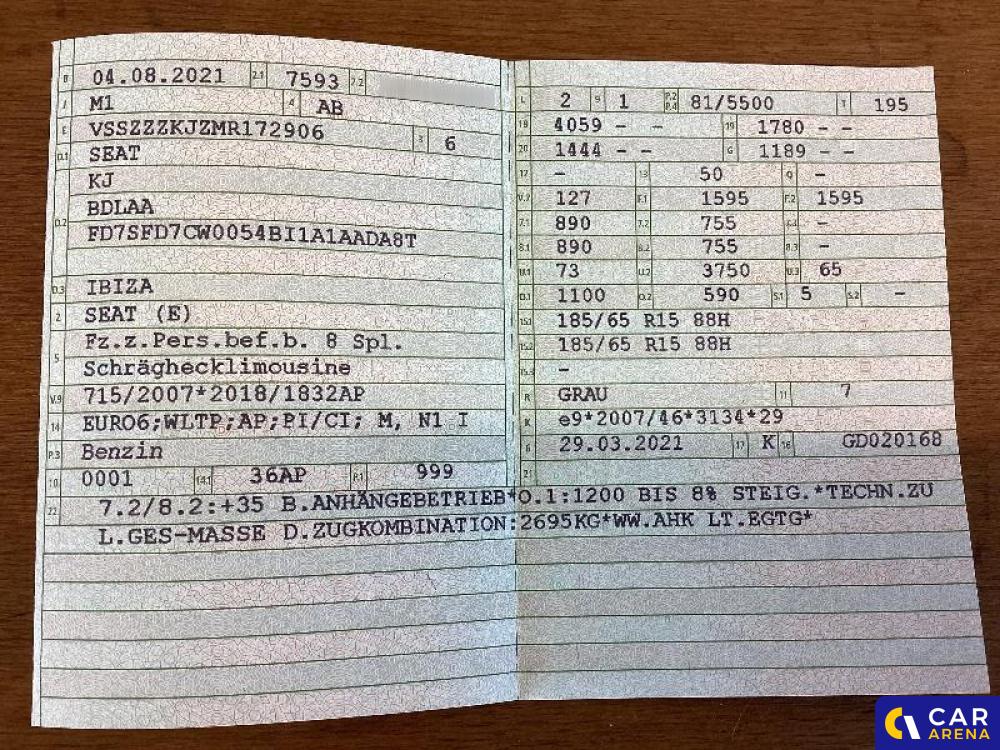 B 04.08.2021 2.1 7593 2.2
J M1 4 AB
E VSSZZZKJZMR172906 3 6
D.1 SEAT
KJ
D.2 BDLAA
FD7SFD7CW0054BI1A1AADA8T
D.3 IBIZA
2 SEAT (E)
5 Fz.z.Pers.bef.b. 8 Spl.
Schräghecklimousine
V.9 715/2007*2018/1832AP
14 EURO6;WLTP;AP;PI/CI; M, N1 I
P.3 Benzin
10 0001 14.1 36AP P.1 999
L 2 9 1 P.2 P.4 81/5500 T 195
18 4059 - - 19 1780 - -
20 1444 - - G 1189 - -
12 - 13 50 Q -
V.7 127 F.1 1595 F.2 1595
7.1 890 7.2 755 7.3 -
8.1 890 8.2 755 8.3 -
U.1 73 U.2 3750 U.3 65
O.1 1100 O.2 590 S.1 5 S.2 -
15.1 185/65 R15 88H
15.2 185/65 R15 88H
15.3 -
R GRAU 11 7
K e9*2007/46*3134*29
6 29.03.2021 17 K 16 GD020168
21
22 7.2/8.2:+35 B.ANHÄNGEBETRIEB*O.1:1200 BIS 8% STEIG.*TECHN.ZU
L.GES-MASSE D.ZUGKOMBINATION:2695KG*WW.AHK LT.EGTG*
CAR
ARENA